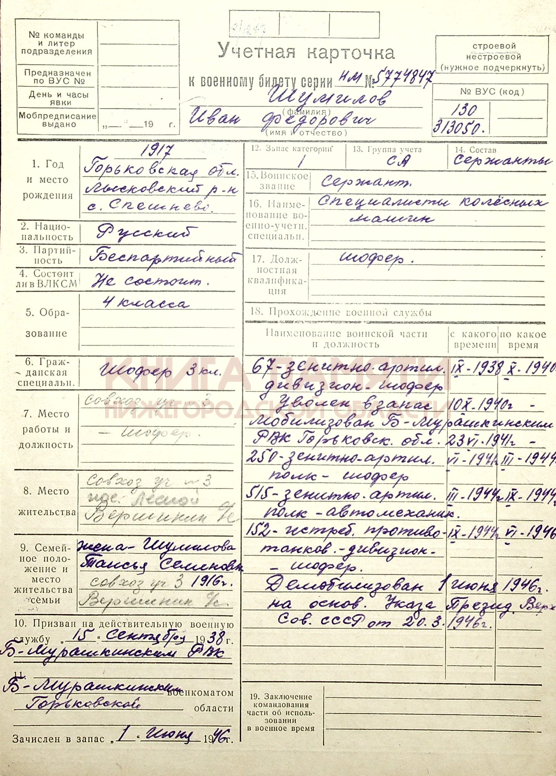 № команды
и литер
подразделения
Предназначен
по ВУС №
День и часы
явки
Мобпредписание
выдано „ “ 19 г.
Учетная карточка
к военному билету серии НМ № 5774847
Шумилов
(фамилия)
Иван Федорович
(имя и отчество)
строевой
нестроевой
(нужное подчеркнуть)
№ ВУС (код)
130
313050.
1. Год
и место
рождения
1917
Горьковская обл.
Лысковский р-н
с. Спешнево.
2. Нацио-
нальность
Русский
3. Партий-
ность
Беспартийный
4. Состоит
ли в ВЛКСМ
Не состоит.
5. Обра-
зование
4 класса
6. Граж-
данская
специальн.
Шофер 3 кл.
7. Место
работы и
должность
совхоз уч 3
– шофер.
8. Место
жительства
совхоз уч – 3
пос. Лесной
Вершинин
9. Семей-
ное поло-
жение и
место
жительства
семьи
жена – Шумилова
Таисья Семеновна
совхоз уч 3 1916г.
Вершинин
10. Призван на действительную военную
службу 15. Сентября 1938 г.
Б-Мурашкинским РВК
11.
Б-Мурашкинским военкоматом
Горьковской области
Зачислен в запас „ 1 . Июня 1946г.
12. Запас категории
1
13. Группа учета
СА
14. Состав
Сержанты
15. Воинское
звание
Сержант.
16. Наиме-
нование во-
енно-учетн.
специальн.
Специалисты колёсных
машин
17. Долж-
ностная
квалифика-
ция
шофер.
18. Прохождение военной службы
Наименование воинской части
и должность
с какого
времени
по какое
время
67-зенитно-артил. IX-1938 X-1940
дивизион-шофер
Уволен в запас 10 X.1940г –
Мобилизован Б-Мурашкинским
РВК Горьковск. обл. 23 VI-194 –
250-зенитно-артил. VI-194 III-194
полк – шофер
515-зенитно-артил. III-194 IX-194
полк-автомеханик.
152-истреб. противо- IX-194 VI-1946
танков.-дивизион-
– шофер.
Демобилизован 1 июня 1946г.
на основ. Указа Презид Верх
Сов. СССР от 20.3. 1946г.
19. Заключение
командования
части об исполь-
зовании
в военное время
КНИГА ПАМЯТИ
НИЖЕГОРОДСКОЙ ОБЛАСТИ